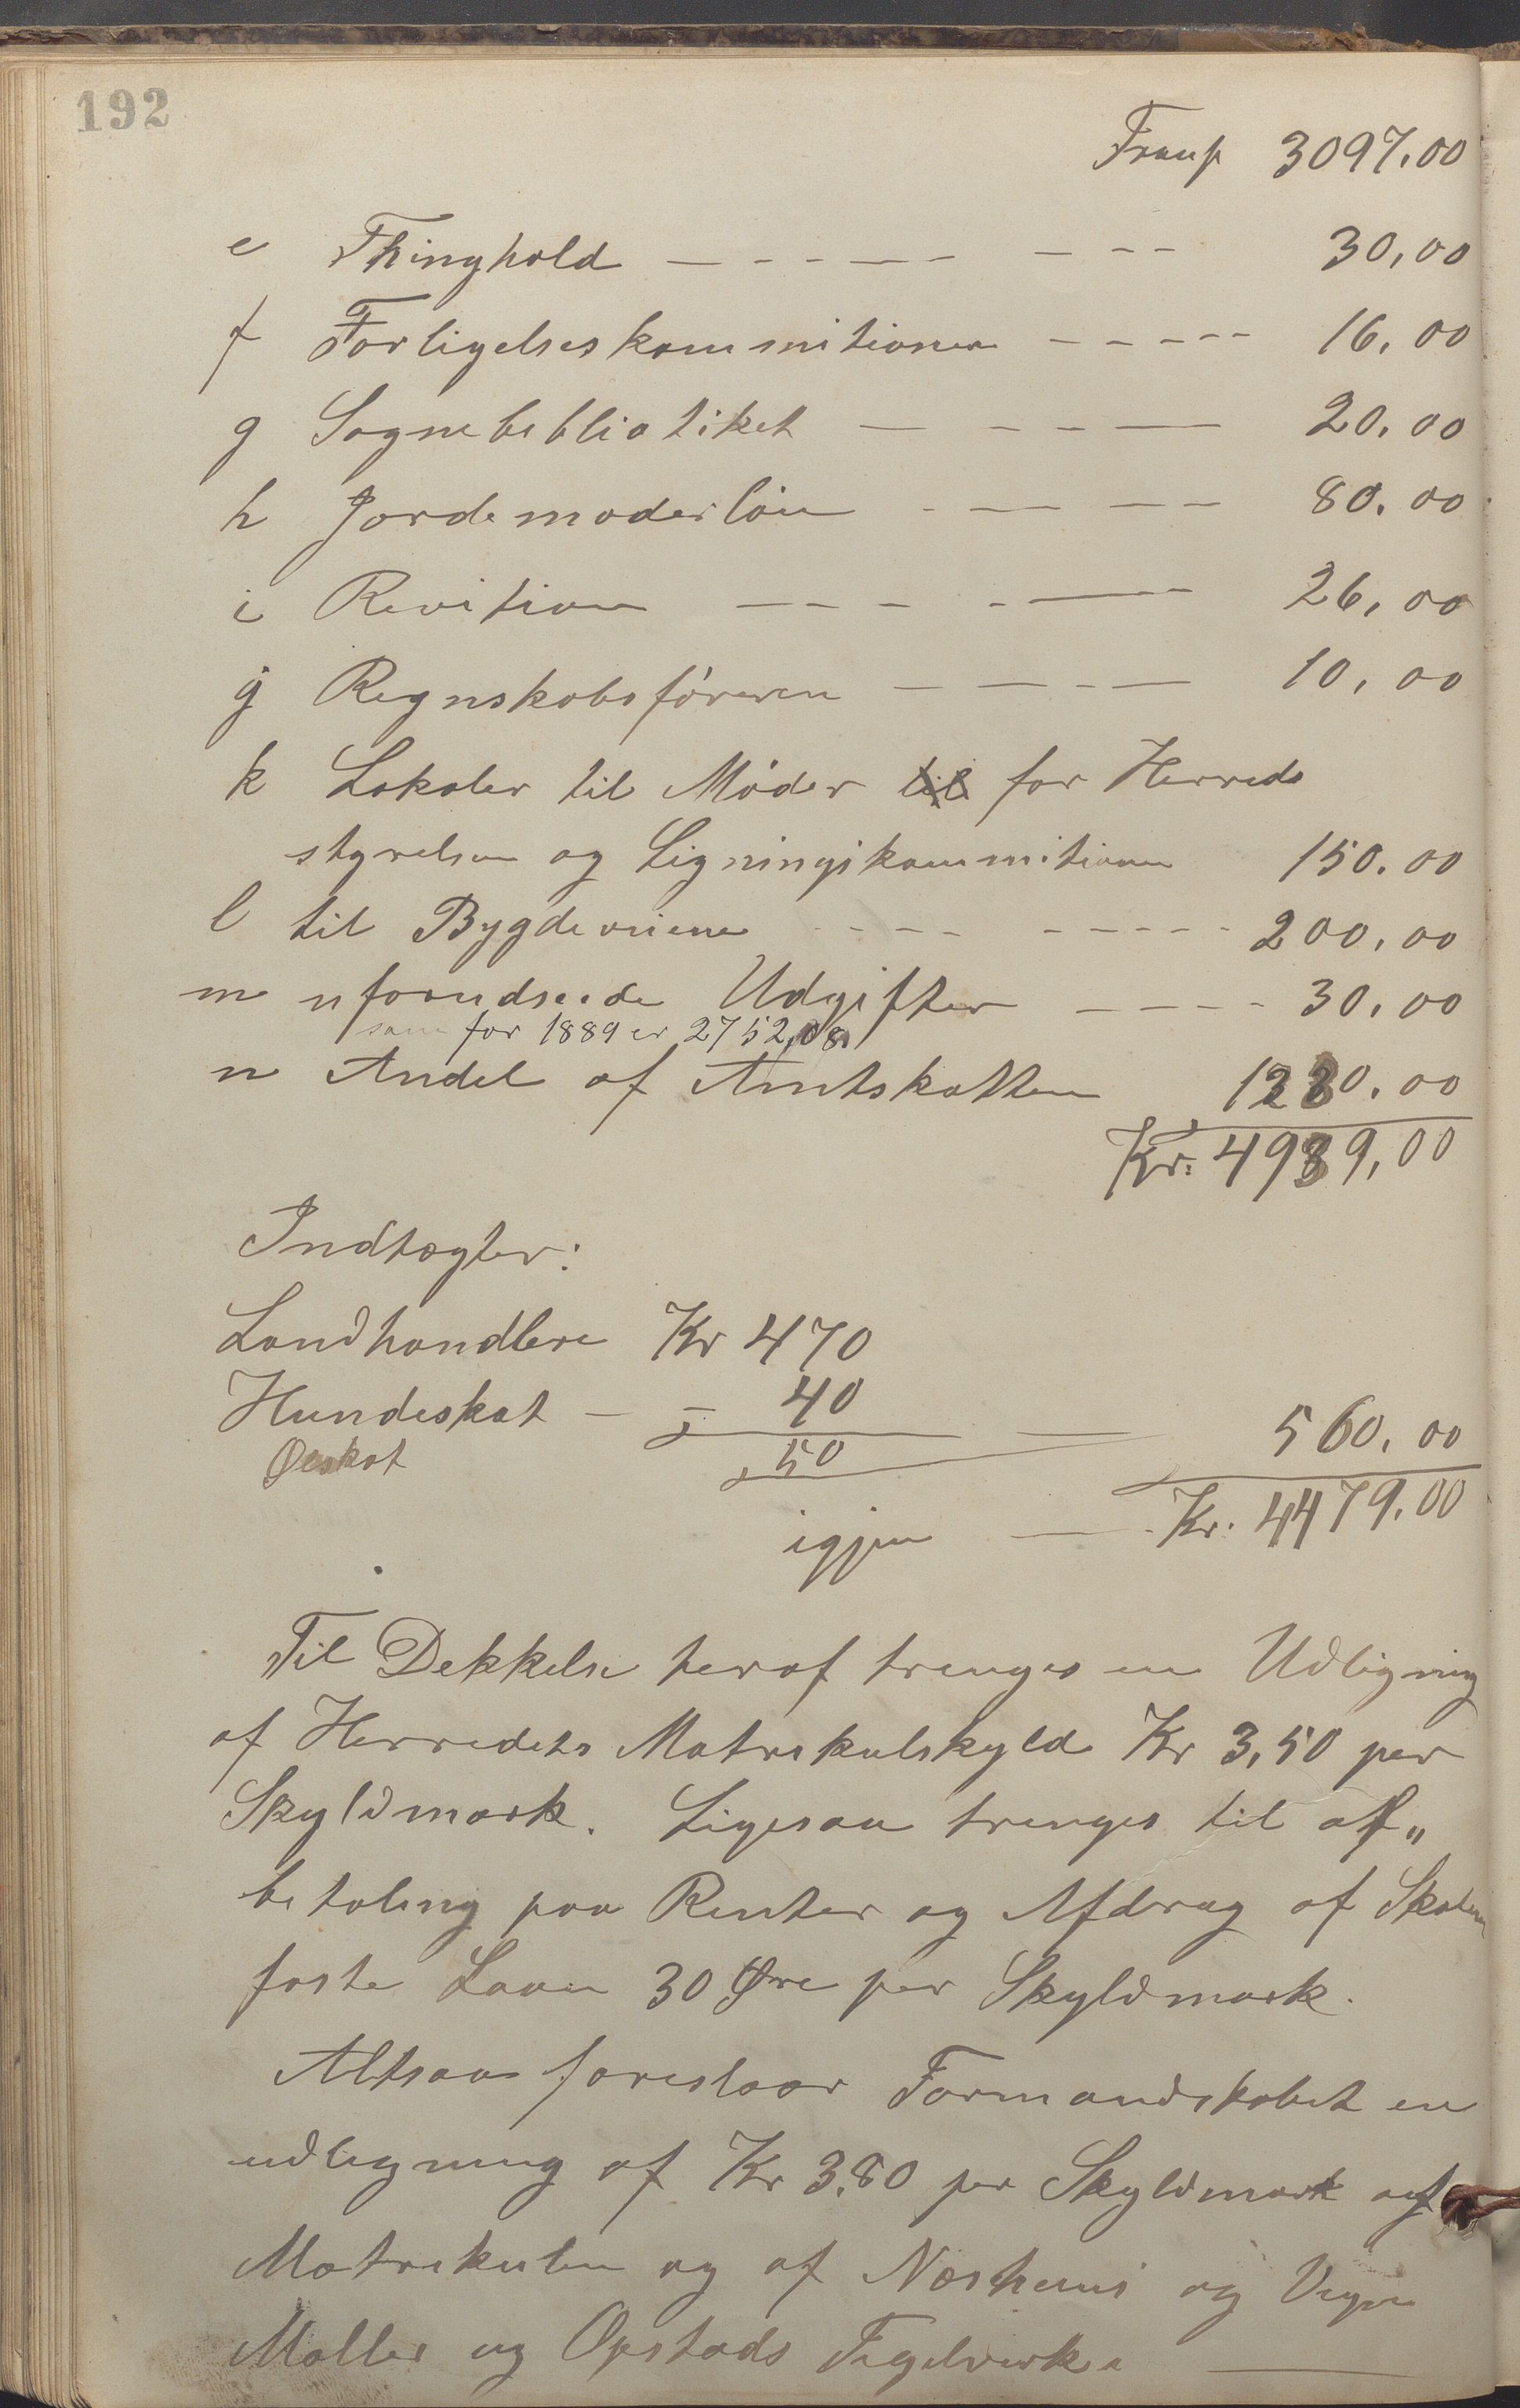 192
Transp 3097.00
e Thinghold — - - - — - - - - 30,00
f Forligelseskommitionen - - - - - 16,00
g Sognebebliotiket — - - - — 20.00
h Jordemoderlön - — — - - 80.00
i Revition — - - - — 26,00
j Regnskabsföreren — — - — 10,00
k Lokaler til Möder til for Herreds
styrelsen og Ligningskommitionen 150.00
l til Bygdeveiene - - - - - - - - 200,00
m uforudseede Udgifter - - - - 30,00
som for 1889 er 2752,08
n Andel af Amtskatten 1330.00
Kr. 4989,00
Indtægter:
Landhandlere Kr 470
Hundeskat — - 40 560,00
Ølskat 50
igjen — Kr. 4479,00
Til Dekkelse heraf trenges en Udligning
af Herredets Matrikulskyld Kr 3,50 per
Skyldmark. Ligesaa trenges til af„
betaling paa Renter og Afdrag af Skolens
faste Laan 30 Øre per Skyldmark.
Altsaa foreslaar Formandskabet en
udligning af Kr 3.80 per Skyldmark af
Matrikulen og af Næsheims og Vigre
Møller og Opstads Teglverk